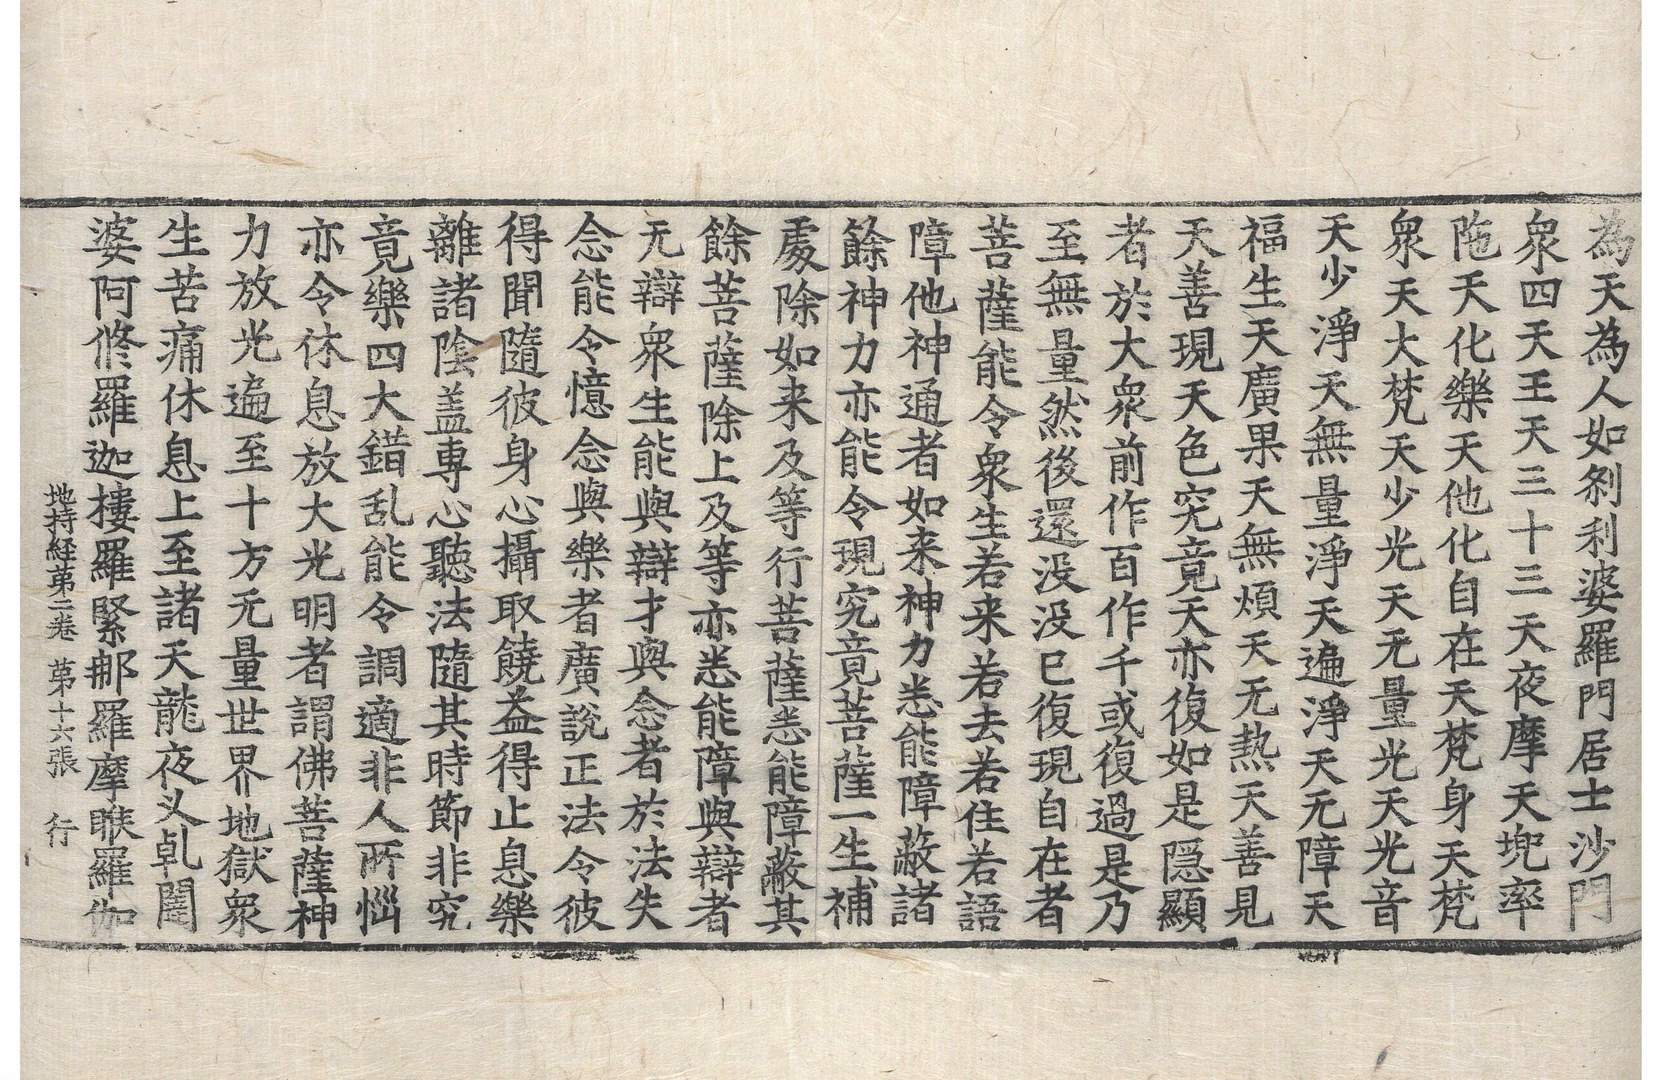 為天為人如剎利婆羅門居士沙門
衆四天王天三十三天夜摩天兜率
陁天化樂天他化自在天梵身天梵
衆天大梵天少光天无量光天光音
天少淨天無量淨天遍淨天无障天
福生天廣果天無煩天无熱天善見
天善現天色究竟天亦復如是隱顯
者於大衆前作百作千或復過是乃
至無量然後還没没已復現自在者
菩薩能令衆生若来若去若住若語
障他神通者如来神力悉能障蔽諸
餘神力亦能令現究竟菩薩一生補
處除如来及等行菩薩悉能障蔽其
餘菩薩除上及等亦悉能障與辯者
无辯衆生能與辯才與念者於法失
念能令憶念與樂者廣說正法令彼
得聞隨彼身心攝取饒益得止息樂
離諸陰盖專心聽法隨其時節非究
竟樂四大錯乱能令調適非人所惱
亦令休息放大光明者謂佛菩薩神
力放光遍至十方无量世界地獄衆
生苦痛休息上至諸天龍夜叉乹闥
婆阿修羅迦樓羅緊那羅摩睺羅伽
地持経苐二卷 苐十六張 行